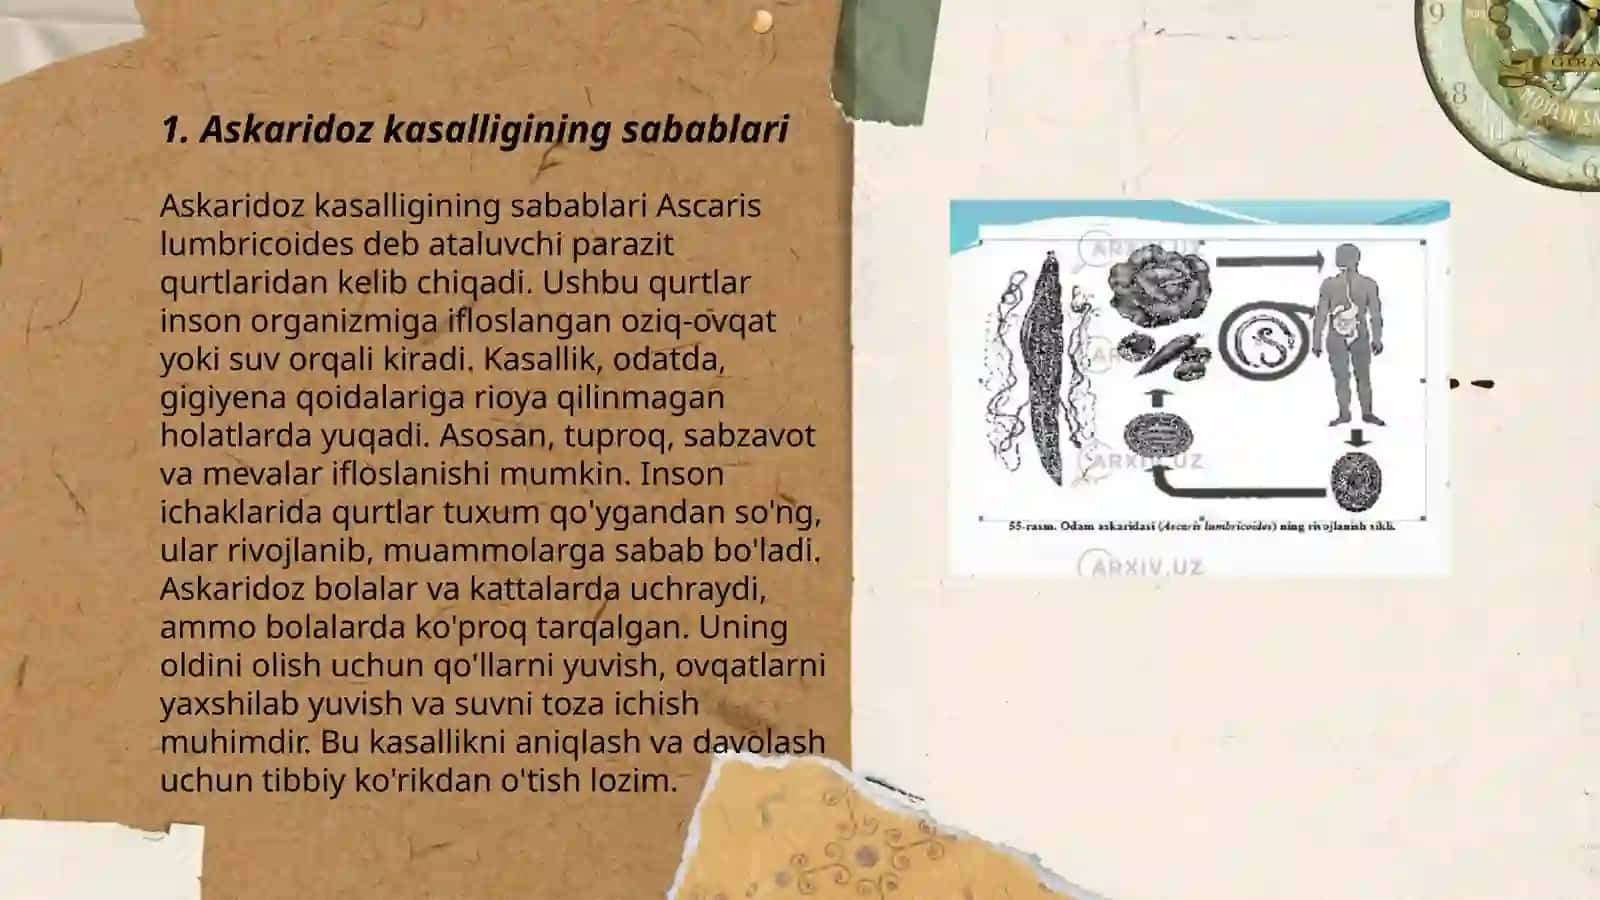 1. Askaridoz kasalligining sabablari
Askaridoz kasalligining sabablari Ascaris
lumbricoides deb ataluvchi parazit
qurtlaridan kelib chiqadi. Ushbu qurtlar
inson organizmiga ifloslangan oziq-ovqat
yoki suv orqali kiradi. Kasallik, odatda,
gigiyena qoidalariga rioya qilinmagan
holatlarda yuqadi. Asosan, tuproq, sabzavot
va mevalar ifloslanishi mumkin. Inson
ichaklarida qurtlar tuxum qo'ygandan so'ng,
ular rivojlanib, muammolarga sabab bo'ladi.
Askaridoz bolalar va kattalarda uchraydi,
ammo bolalarda ko'proq tarqalgan. Uning
oldini olish uchun qo'llarni yuvish, ovqatlarni
yaxshilab yuvish va suvni toza ichish
muhimdir. Bu kasallikni aniqlash va davolash
uchun tibbiy ko'rikdan o'tish lozim.
ARXIV.UZ
ARXIV.UZ
55-rasm. Odam askaridasi (Ascaris lumbricoides) ning rivojlanish sikli.
ARXIV.UZ
9
8
6
MOULIN